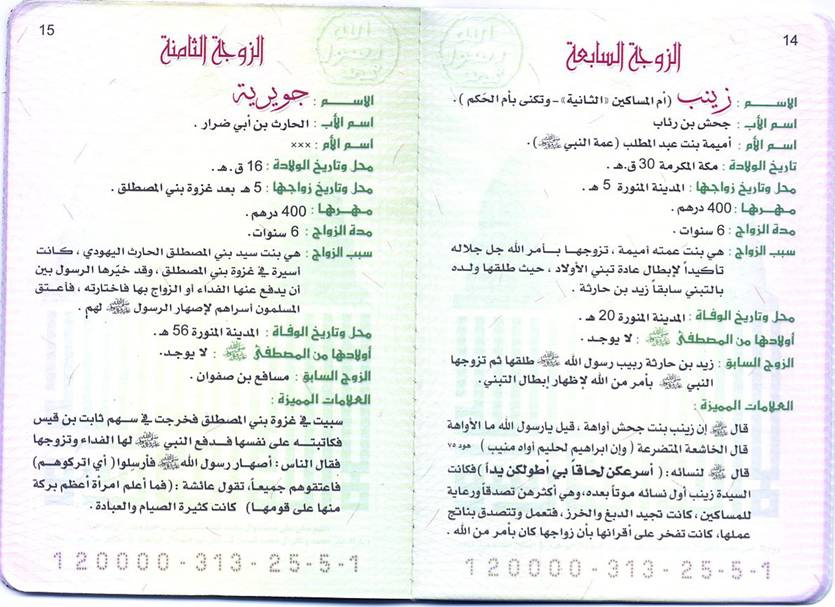 14
الزوجة السابعة
الاسم : زينب (أم المساكين «الثانية» - وتكنى بأم الحكم ) .
اسم الأب : جحش بن رئاب
اسم الأم : أميمة بنت عبد المطلب (عمة النبي ﷺ).
تاريخ الولادة : مكة المكرمة 30 ق.هـ .
محل وتاريخ زواجها : المدينة المنورة 5 هـ .
مهرها : 400 درهم .
مدة الزواج : 6 سنوات .
سبب الزواج : هي بنت عمته أميمة ، تزوجها بأمر الله جل جلاله
تأكيداً لإبطال عادة تبني الأولاد ، حيث طلقها ولده
بالتبني سابقاً زيد بن حارثة .
محل وتاريخ الوفاة : المدينة المنورة 20 هـ .
أولادها من المصطفى ﷺ : لا يوجد .
الزوج السابق : زيد بن حارثة ربيب رسول الله ﷺ طلقها ثم تزوجها
النبي ﷺ بأمر من الله لإظهار إبطال التبني .
العلامات المميزة :
قال ﷺ إن زينب بنت جحش أواهة ، قيل يارسول الله ما الأواهة
قال الخاشعة المتضرعة ( وإن ابراهيم لحليم أواه منيب ) هود ٧٥
قال ﷺ لنسائه : ( أسرعكن لحاقاً بي أطولكن يداً ) فكانت
السيدة زينب أول نسائه موتاً بعده، وهي أكثرهن تصدقاً ورعاية
للمساكين ، كانت تجيد الدبغ والخرز ، فتعمل وتتصدق بناتج
عملها، كانت تفخر على أقرانها بأن زواجها كان بأمر من الله .
120000-313-25-5-1
15
الزوجة الثامنة
الاسم : جويرية
اسم الأب : الحارث بن أبي ضرار .
اسم الأم : ×××
محل وتاريخ الولادة : 16 ق.هـ .
محل وتاريخ زواجها : 5 هـ بعد غزوة بني المصطلق .
مهرها : 400 درهم .
مدة الزواج : 6 سنوات .
سبب الزواج : هي بنت سيد بني المصطلق الحارث اليهودي ، كانت
أسيرة في غزوة بني المصطلق ، وقد خيّرها الرسول بين
أن يدفع عنها الفداء أو الزواج بها فاختارته ، فأعتق
المسلمون أسراهم لإصهار الرسول ﷺ لهم .
محل وتاريخ الوفاة : المدينة المنورة 56 هـ .
أولادها من المصطفى ﷺ : لا يوجد.
الزوج السابق : مسافع بن صفوان .
العلامات المميزة :
سبيت في غزوة بني المصطلق فخرجت في سهم ثابت بن قيس
فكاتبته على نفسها فدفع النبي ﷺ لها الفداء وتزوجها
فقال الناس : أصهار رسول الله ﷺ فأرسلوا( أي اتركوهم )
فاعتقوهم جميعاً، تقول عائشة : (فما أعلم امرأة أعظم بركة
منها على قومها) كانت كثيرة الصيام والعبادة .
120000-313-25-5-1